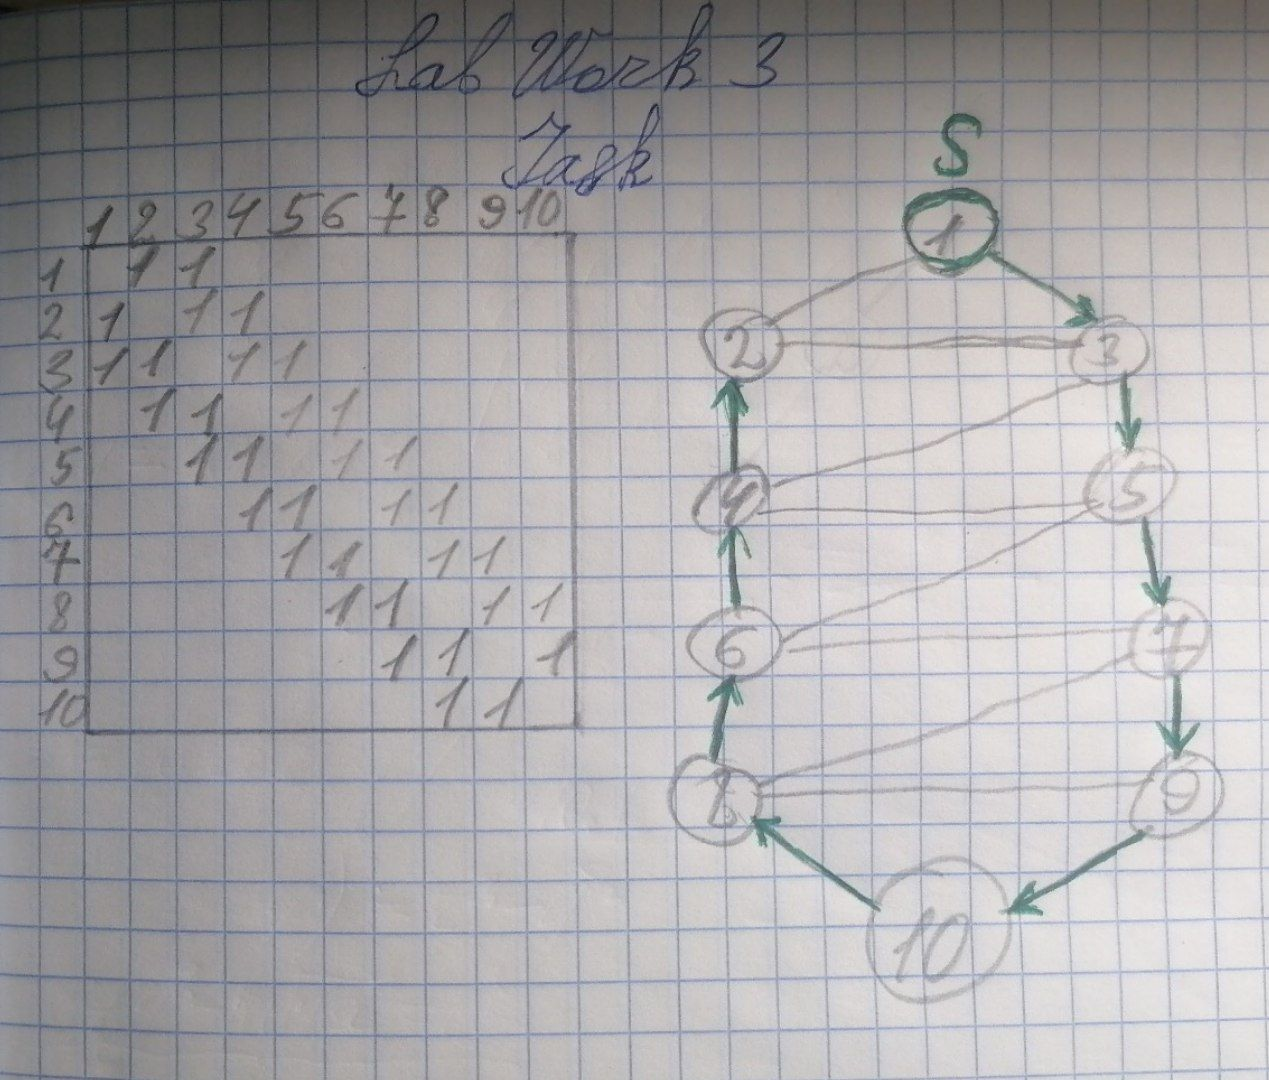 Lab Work 3
Task
S
1 2 3 4 5 6 7 8 9 10
1 1 1
2 1 1 1
3 1 1 1 1
4 1 1 1 1
5 1 1 1 1
6 1 1 1 1
7 1 1 1 1
8 1 1 1 1
9 1 1 1
10 1 1
1
2 3
4 5
6 7
8 9
10